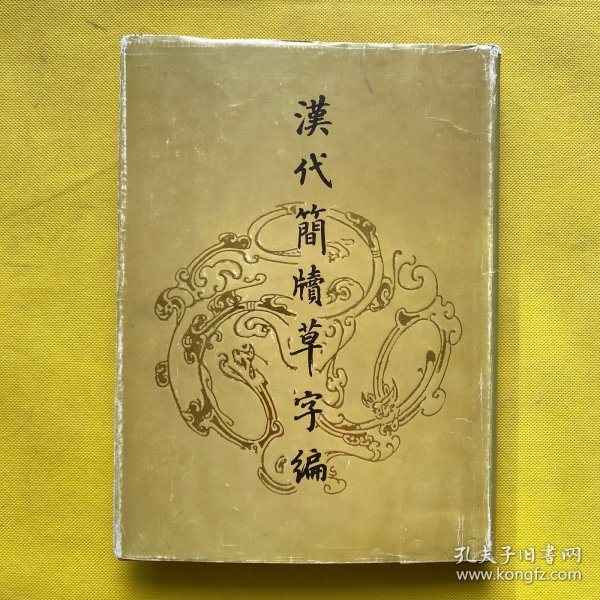 漢代簡牘草字編
孔夫子旧书网
www.kongfz.com